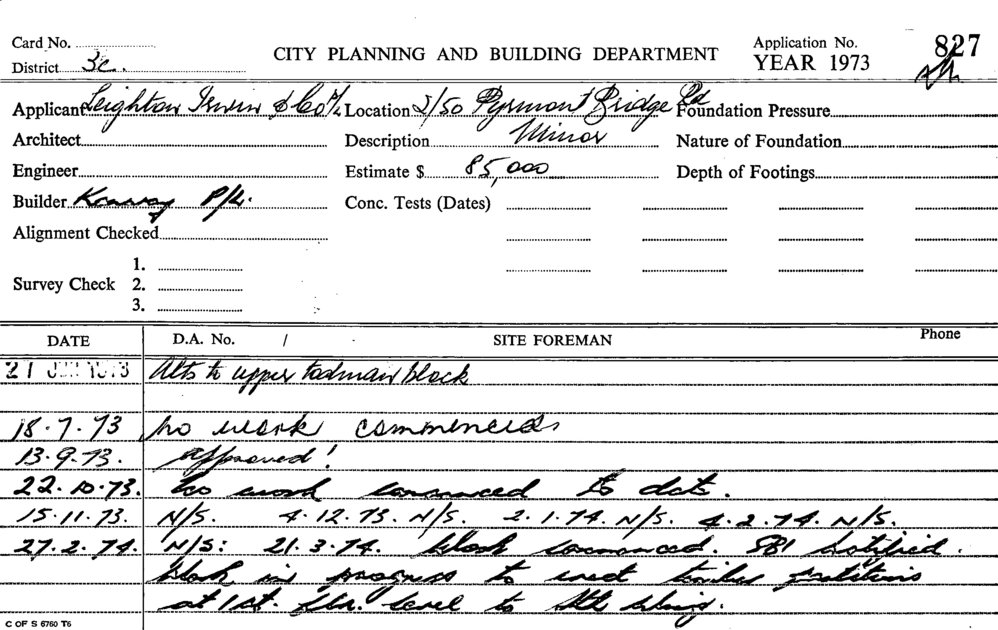 Card No.
District 3c.
CITY PLANNING AND BUILDING DEPARTMENT
Application No. 827
YEAR 1973
Applicant Leighton Irwin & Co P/L Location 2/50 Pyrmont Bridge Rd Foundation Pressure
Architect Description Minor Nature of Foundation
Engineer Estimate $ 85,000 Depth of Footings
Builder P/L. Conc. Tests (Dates)
Alignment Checked
1.
Survey Check 2.
3.
DATE D.A. No. / SITE FOREMAN Phone
21 1973 Alts to upper todman block
18.7.73 no work commenced
13.9.73. Approved!
22.10.73. no work commenced to date.
15.11.73. N/S. 4.12.73. N/S. 2.1.74. N/S. 4.2.74. N/S.
27.2.74. N/S: 21.3.74. Work commenced. SBI notified.
Work in progress to erect timber partitions
at 1st. flr. level to
C OF S 6760 T6